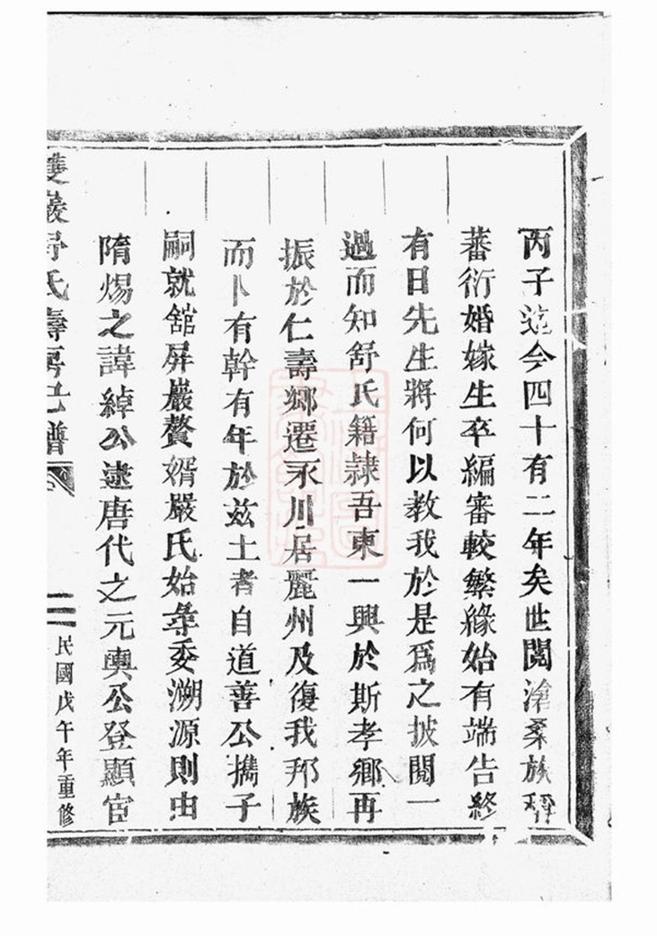 丙子迄今四十有二年矣世閱滄桑族稱
蕃衍婚嫁生卒編審較繁緣始有端告終
有日先生將何以教我於是爲之披閱一
過而知舒氏籍隷吾東一興於斯孝鄉再
振於仁壽鄉遷永川居麗州及復我邦族
而卜有幹有年於兹土者自道善公擕子
嗣就舘屏巖贅婿嚴氏始尋委溯源則由
隋煬之諱綽公逮唐代之元輿公登顯宦
雙巖舒氏壽房己譜
二
民國戊午年重修